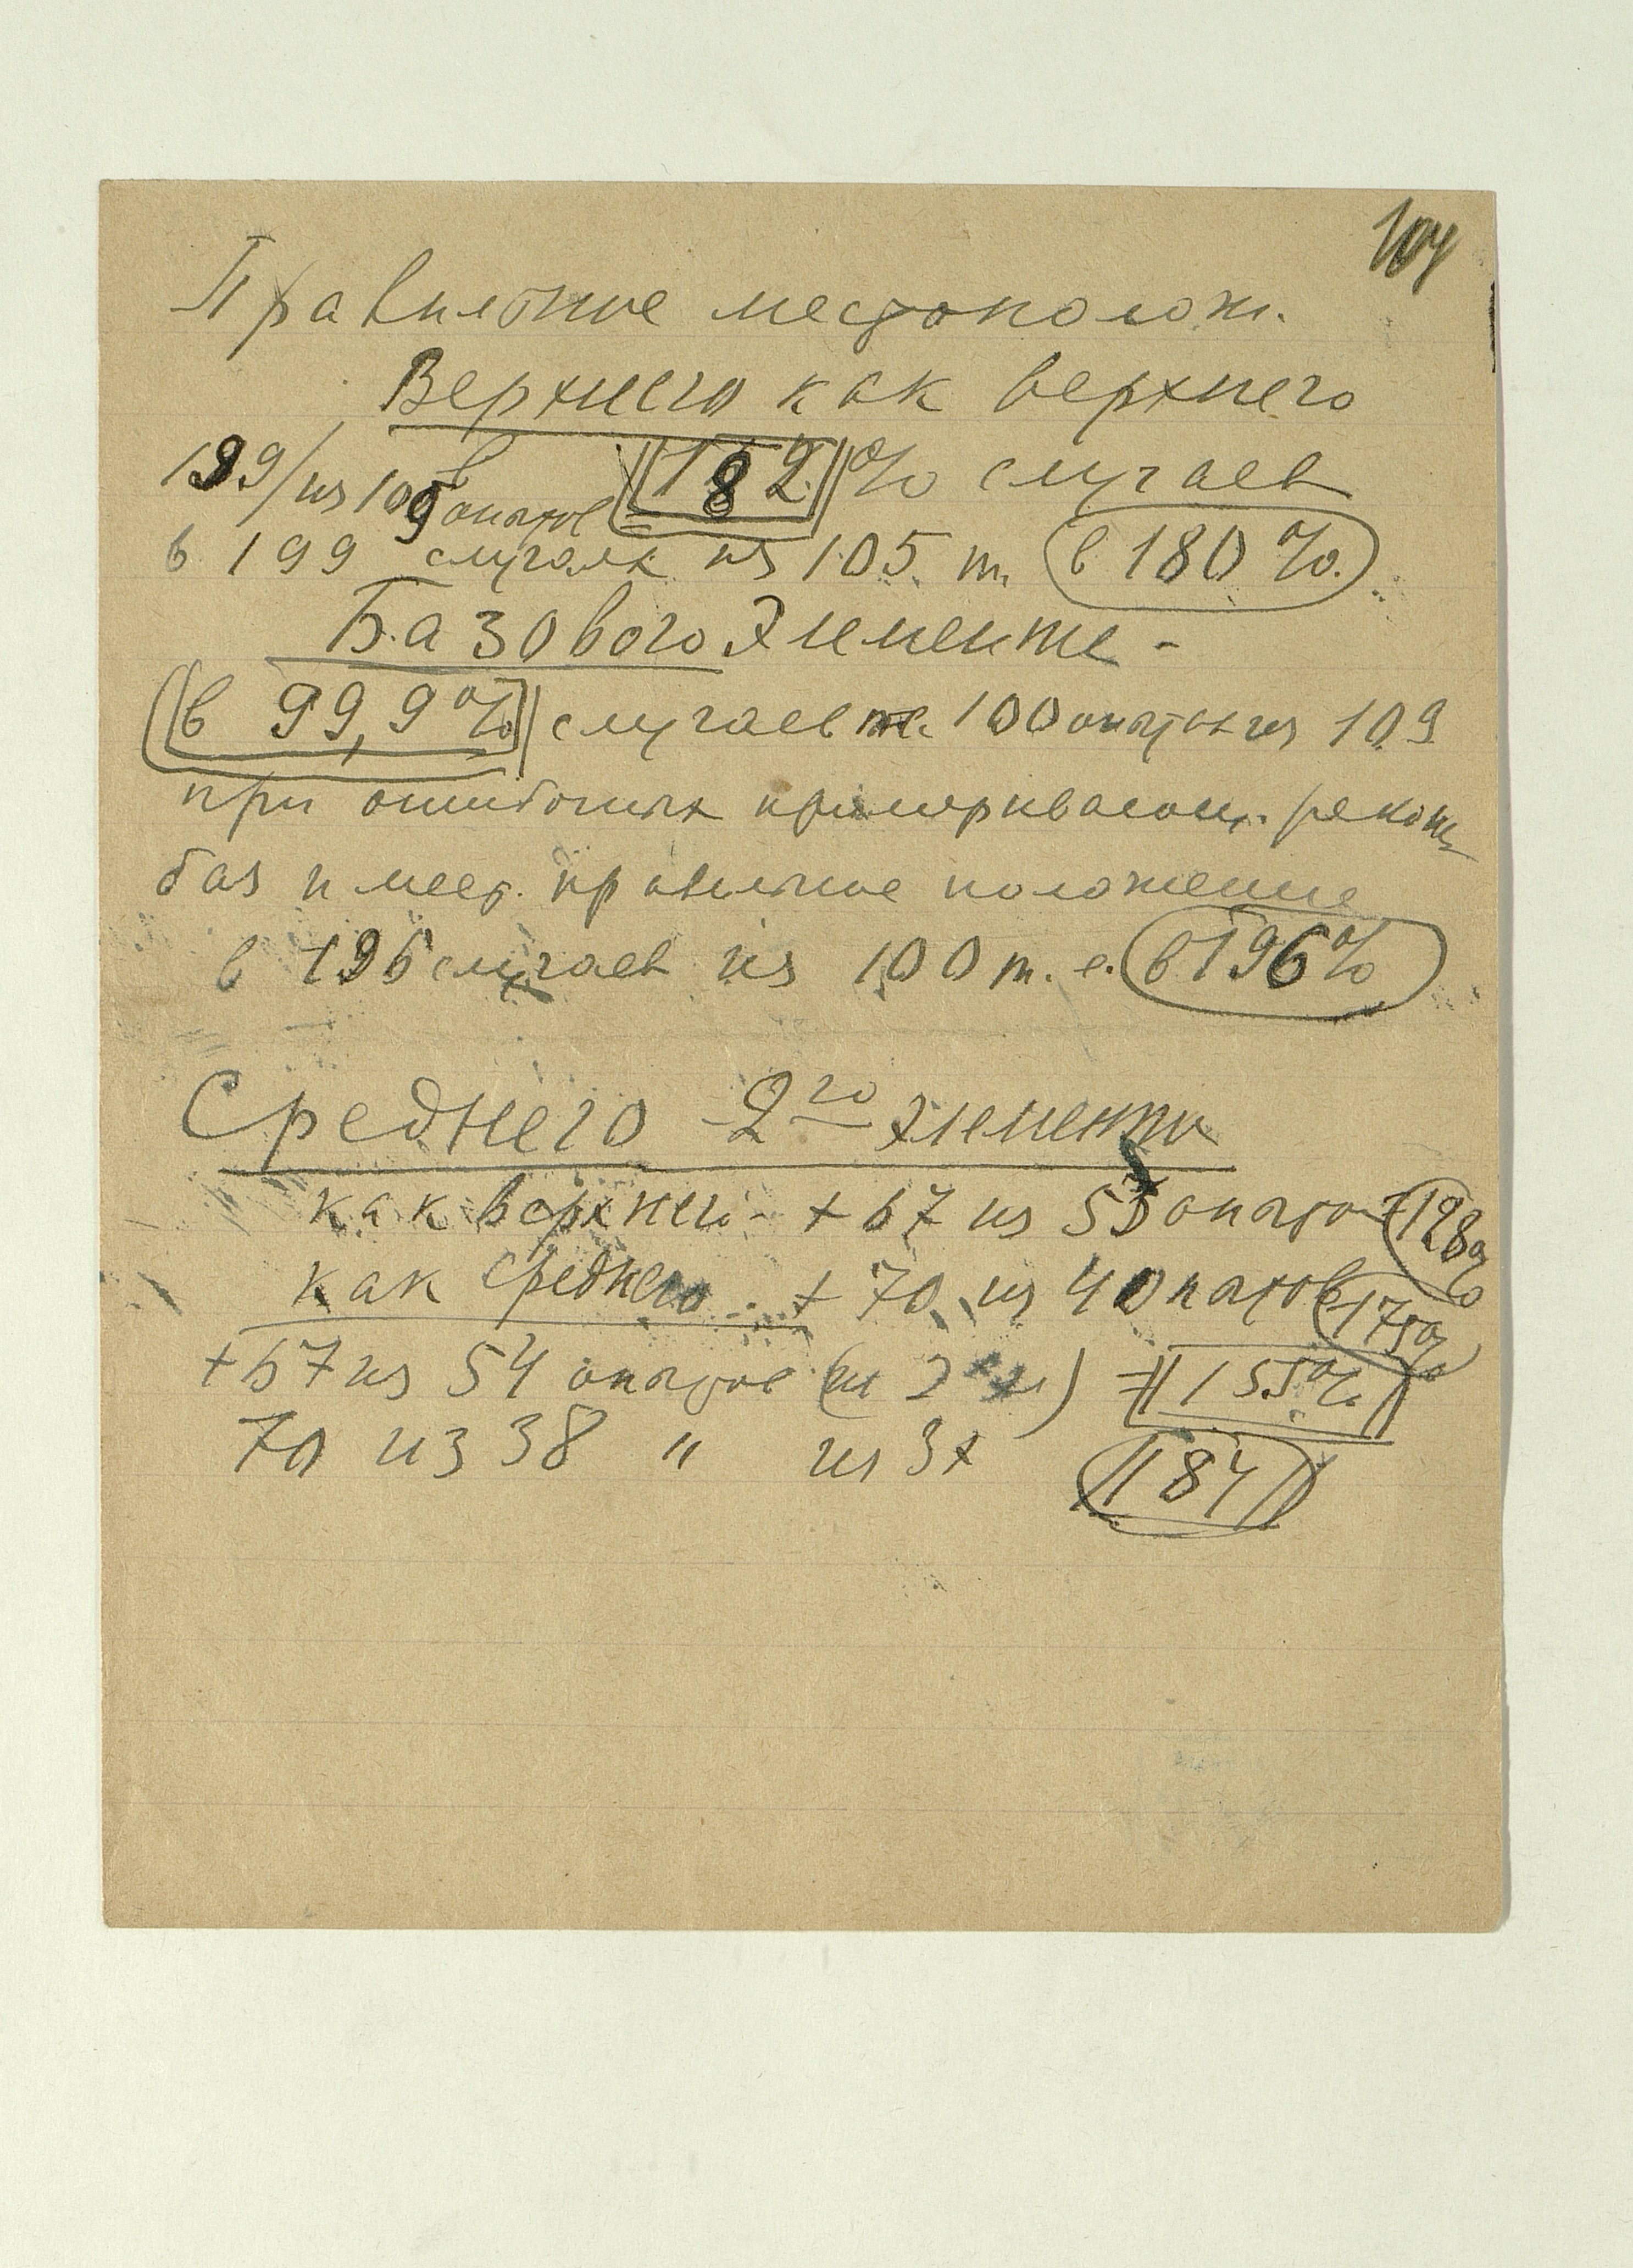 104
Правильное местополож.
Верхнего как верхнего
199/из 109 опытов в 182% случаев
в 199 случаях из 105 т. в 180%.
Базового элемента -
в 99,9% случаев т.е. 100 опытах из 109
при ошибочных примериваниях
баз имеет. правильное положение
в 196 случаев из 100 т. е. в 196%
Среднего 2го элемента
как верхнего - + 67 из 53 опытов 128%
как среднего + 70 из 40 опытов 175%
+ 67 из 54 опытов (из 2х) = 155%
70 из 38 " из 3х 184